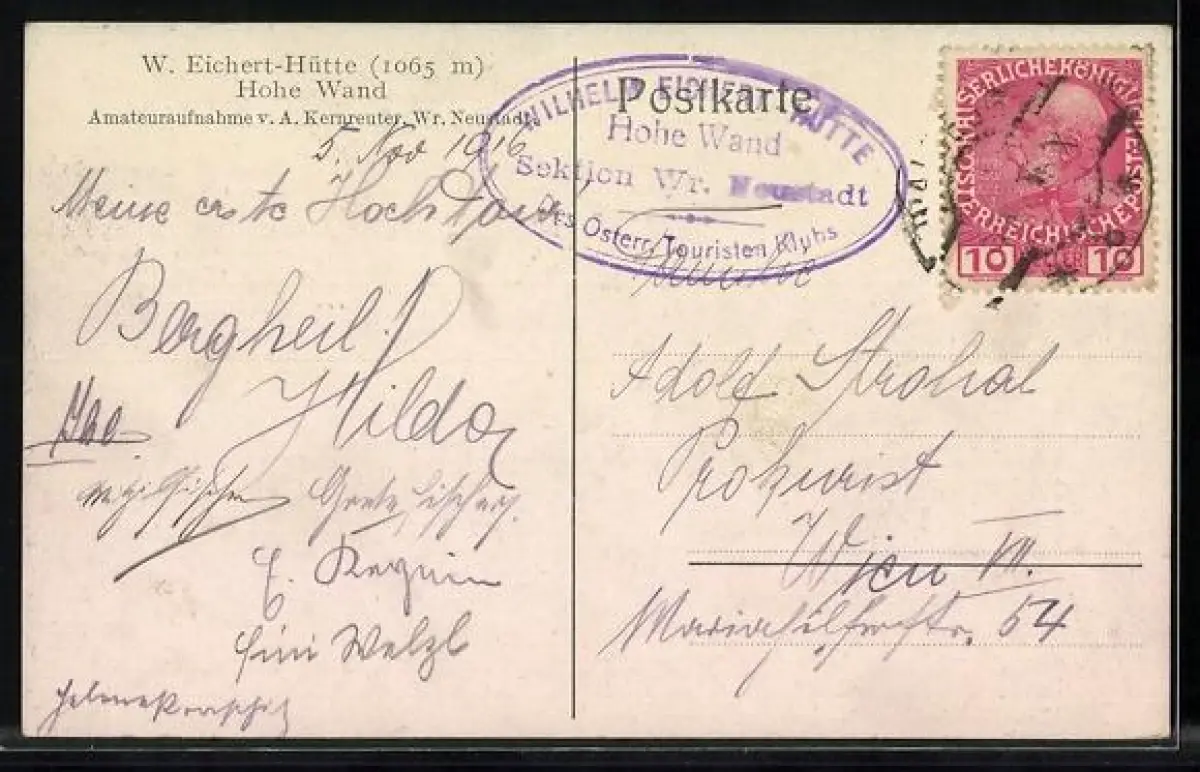 W. Eichert-Hütte (1065 m)
Hohe Wand
Amateuraufnahme v. A. Kernreuter, Wr. Neustadt
5. Nov 1916
Meine erste Hochtour
Bergheil!
Hilda
Grete
Fini Welzl
Postkarte
WILHELM EICHERT HÜTTE
Hohe Wand
Sektion Wr. Neustadt
des Österr. Touristen Klubs
KAISERLICHE KÖNIGLICHE
ÖSTERREICHISCHE POST
10 HELLER 10
Adolf Strohal
Prokurist
Wien VII.
Mariahilferstr. 54